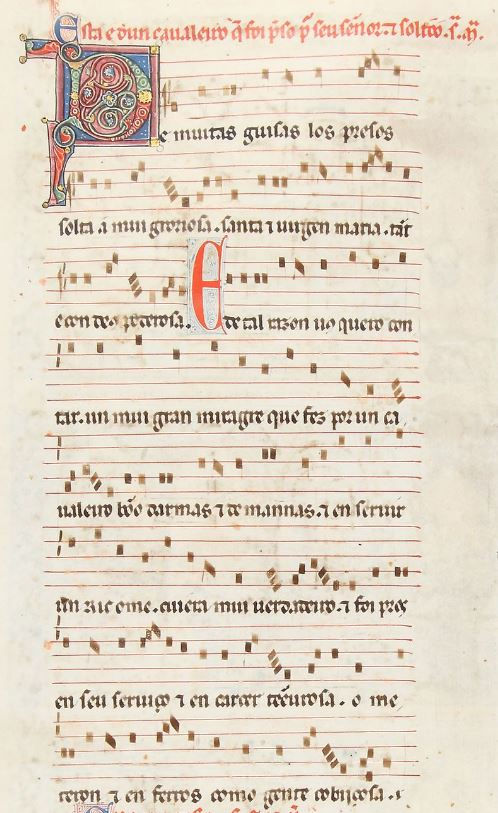 Esta é dun cavaleiro q̃ foi p̃so p̃ seu señor. ⁊ soltóo. s̃. m̃.
De muitas guisas los presos
solta a mui groriosa. santa ⁊ uirgen maria. tãt
é con deꝯ poderosa. E de tal razon uꝯ quero con
tar. un mui gran miragre que fez por un ca
ualeiro bõo darmas ⁊ de mannas. ⁊ en seruir
un ric ome. cuieta mui uerdadeiro. ⁊ foi pres
en seu seruiço ⁊ en carcer tẽeurosa. o me
teron ⁊ en ferros como gente cobijçosa.